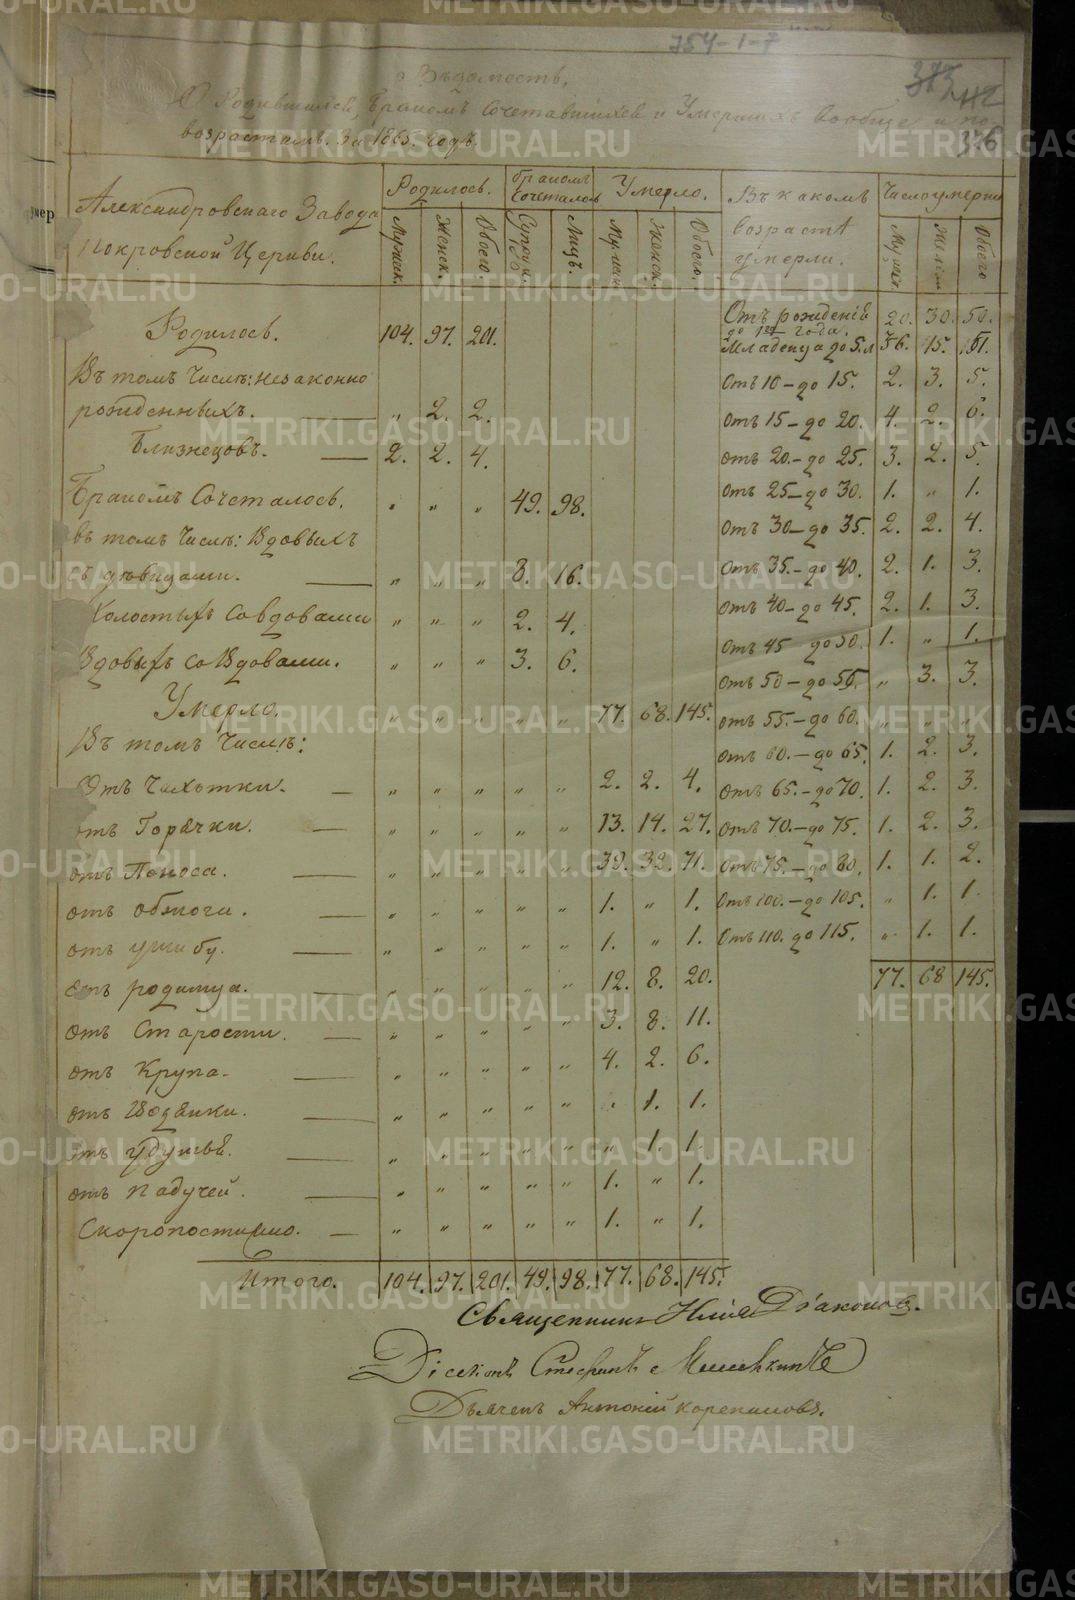 754-1-7
373
112
376
Вѣдомость,
О Родившихся, бракомъ сочетавшихся и Умершихъ вообще и по-
возрастамъ. За 1865. Годъ.
Александровскаго Завода
Покровской Церкви.
Родилось. Бракомъ сочеталось Умерло. Въ какомъ возрастѣ умерли. Число умерши
Мужск. Женск. Обоего. Супруж. Лицъ. Мужск. Женск. Обоего. Мужск Женск Обоего
Родилось. 104. 97. 201.
Въ томъ Числѣ: незаконно
рожденныхъ. „ 2. 2.
Близнецовъ. 2. 2. 4.
Бракомъ Сочеталось. „ „ „ 49. 98.
въ томъ Числѣ: Вдовыхъ
съ дѣвицами. „ „ „ 8. 16.
Холостыхъ со вдовами „ „ „ 2. 4.
Вдовыхъ со Вдовами. „ „ „ 3. 6.
Умерло. „ „ „ „ „ 77. 68. 145.
Въ томъ Числѣ:
Отъ Чахотки. „ „ „ „ „ 2. 2. 4.
отъ Горячки. „ „ „ „ „ 13. 14. 27.
отъ Поноса. „ „ „ „ „ 39. 32. 71.
отъ обжоги. „ „ „ „ „ 1. „ 1.
отъ ушибу. „ „ „ „ „ 1. „ 1.
отъ родимца. „ „ „ „ „ 12. 8. 20.
отъ Старости. „ „ „ „ „ 3. 8. 11.
отъ Крупа. „ „ „ „ „ 4. 2. 6.
отъ Водянки. „ „ „ „ „ „ 1. 1.
отъ удушья. „ „ „ „ „ „ 1. 1.
отъ падучей. „ „ „ „ „ 1. „ 1.
Скоропостижно. „ „ „ „ „ 1. „ 1.
Итого. 104. 97. 201. 49. 98. 77. 68. 145.
Отъ рожденія
до 1го года. 20. 30. 50.
Младенца до 5. л 36. 15. 51.
Отъ 10 – до 15. 2. 3. 5.
Отъ 15 – до 20. 4. 2. 6.
отъ 20. – до 25. 3. 2. 5.
отъ 25 – до 30. 1. „ 1.
отъ 30 – до 35. 2. 2. 4.
отъ 35. – до 40. 2. 1. 3.
отъ 40 – до 45. 2. 1. 3.
отъ 45 до 50. 1. „ 1.
отъ 50 – до 55. „ 3. 3.
отъ 55. – до 60. „ „ „
отъ 60. – до 65. 1. 2. 3.
отъ 65. – до 70. 1. 2. 3.
отъ 70. – до 75. 1. 2. 3.
отъ 75. – до 80. 1. 1. 2.
отъ 100. – до 105. „ 1. 1.
Отъ 110. до 115. „ 1. 1.
77. 68 145.
Священникъ Илія Дьяконовъ.
Діаконъ Стефанъ
Дьячекъ Антоній
METRIKI.GASO-URAL.RU